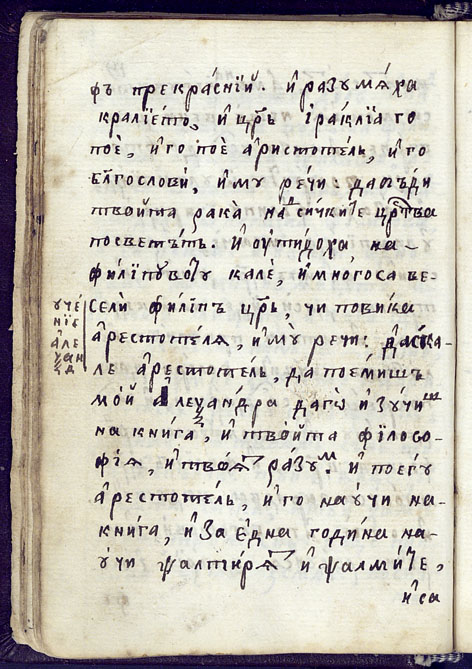 фъ прекра́сній. и҆ разумѧ́ха
кралїето, и҆ цр҃ь іраклїа го
поѐ, и҆ го поѐ а҆ристоте́ль, и҆ го
бл҃гословѝ, и҆ му речѝ да бъ́ди
тво́йта рака̀ над си́чките црⷭ҇тва
по светътъ. и҆ ѹ҆тидоха на-
филіпувоту калѐ, и҆ много са ве
сели филі́пъ цр҃ь, чи повика
а҆рестоте́лѧ, и҆ му̀ речи: даска-
ле а҆ресто́тель, да пое́мишъ
мо́й а҆леѯа́ндра да го̀ и҆зу́чишъ
на книга, и҆ тво́йта філосо-
фі́ѧ, и҆ твоѧта ра́зумъ. и҆ пое гу
а҆ресто́тель, и҆ го научи на-
кни́га, и҆ за е҆дна годи́на на-
у́чи ѱалтирѧт и҆ ѱалми́те,
и҆ са
уче́
нїе
а҆ле
ѯан
д